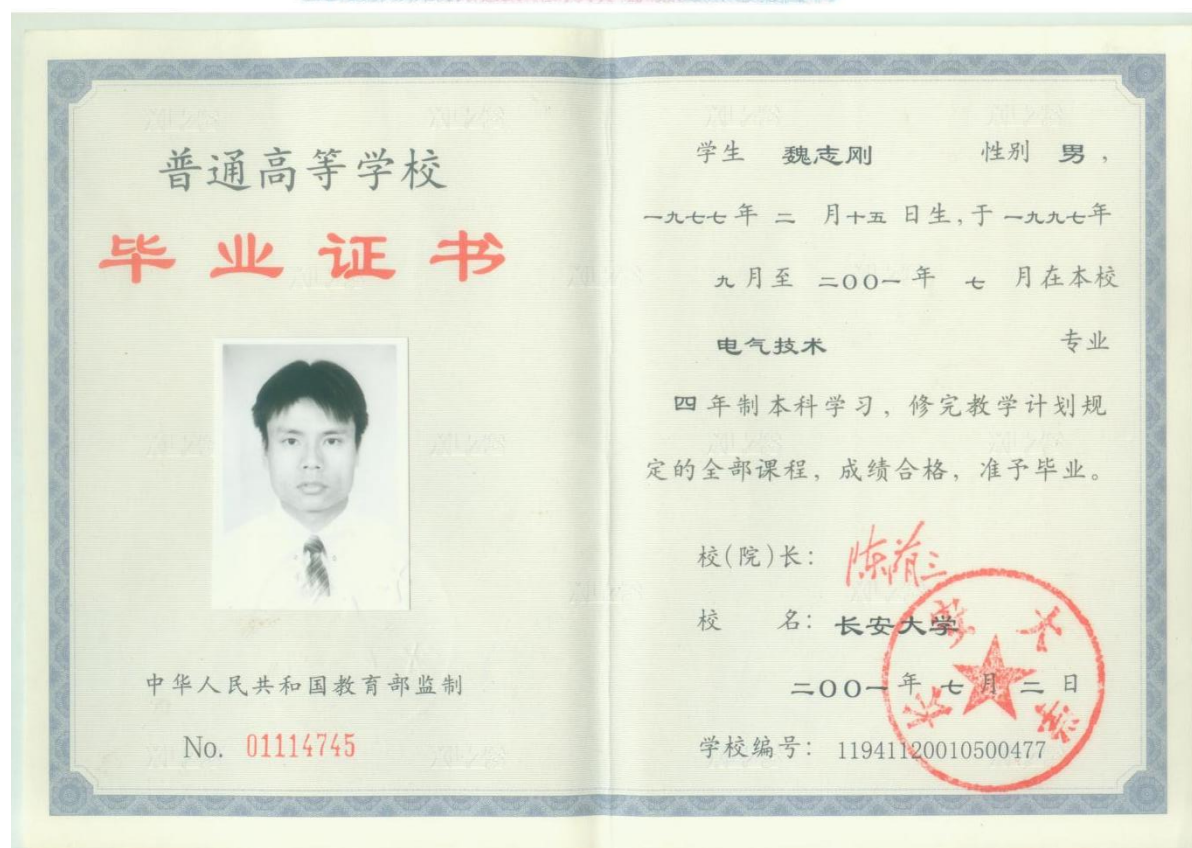 普通高等学校
毕业证书
中华人民共和国教育部监制
No. 01114745
学生 魏志刚 性别 男,
一九七七年 二 月十五 日生,于 一九九七年
九月至 二00一年 七 月在本校
电气技术 专业
四年制本科学习, 修完教学计划规
定的全部课程, 成绩合格, 准予毕业。
校(院)长:
校 名: 长安大学
二00一年 七月 二 日
学校编号: 11941120010500477